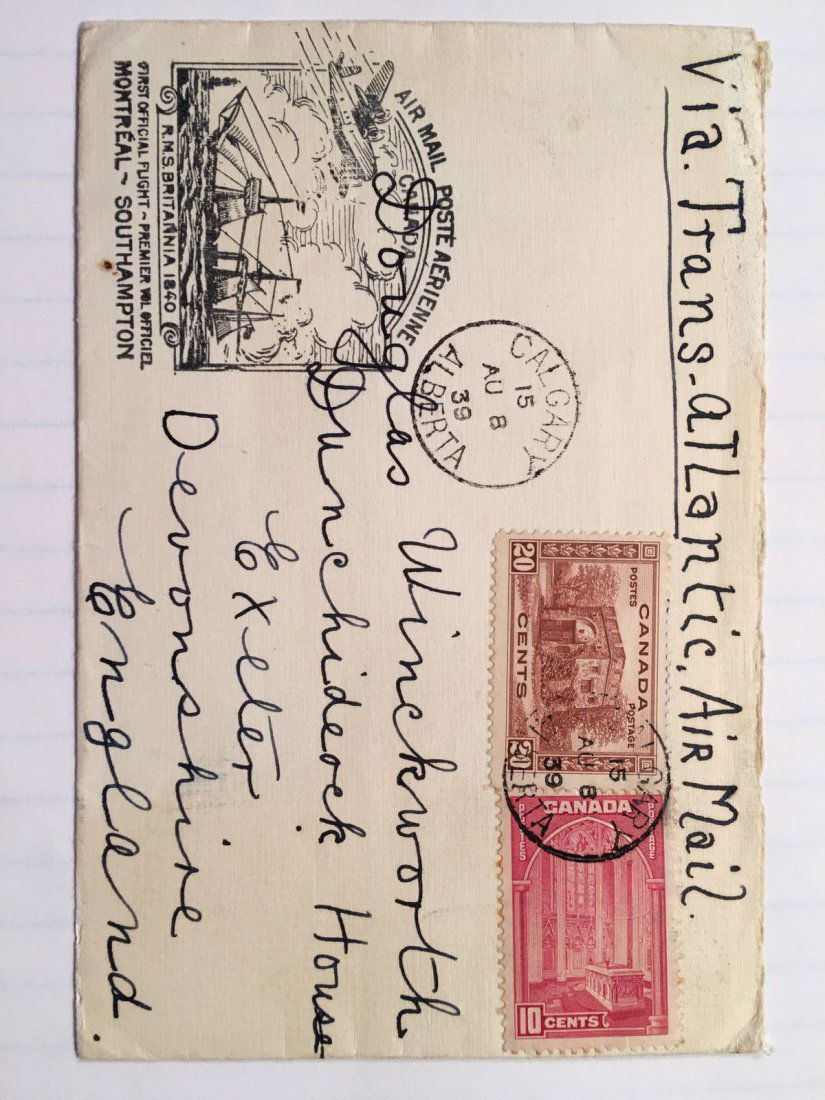 Via. Trans-atlantic, Air Mail.
AIR MAIL POSTE AÉRIENNE
CANADA
R.M.S. BRITANNIA 1840
FIRST OFFICIAL FLIGHT ~ PREMIER VOL OFFICIEL
MONTRÉAL ~ SOUTHAMPTON
CALGARY
15
AU 8
39
ALBERTA
20 20
POSTES POSTAGE
CANADA
CENTS
15
AU 8
39
CANADA
POSTES POSTAGE
10 CENTS
Douglas Winckworth
Dunchideock House
Exeter
Devonshire
England.